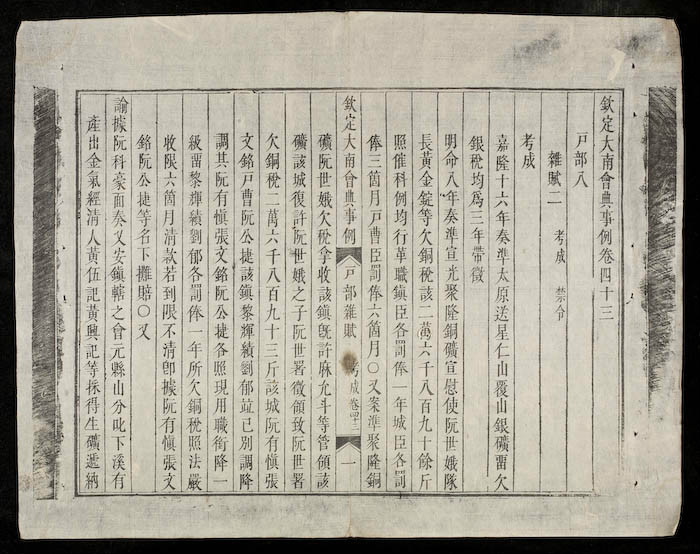 欽定大南會典事例卷四十三
戸部八
雜賦二 考成 禁令
考成
嘉隆十六年奏準太原送星仁山覆山銀礦畱欠
銀稅均爲三年帶徵
明命八年奏準宣光聚隆銅礦宣慰使阮世娥隊
長黃金錠等欠銅稅該二萬六千八百九十餘斤
照催科例均行革職鎮臣各罰俸一年城臣各罰
俸三箇月戸曹臣罰俸六箇月○又案準聚隆銅
欽定大南會典事例 戸部雜賦 考成 卷四十三 一
礦阮世娥欠稅拿收該鎮旣許麻允斗等管領該
礦該城復許阮世娥之子阮世署徵領致阮世署
欠銅稅二萬六千八百九十三斤該城阮有愼張
文銘戸曹阮公捷該鎮黎輝績劉郁竝已別調降
調其阮有愼張文銘阮公捷各照現用職銜降一
級畱黎輝績劉郁各罰俸一年所欠銅稅照法嚴
收限六箇月清款若到限不清卽據阮有愼張文
銘阮公捷等名下攤賠○又
諭據阮科豪面奏乂安鎮轄之會元縣山分叱下溪有
產出金氣經清人黃伍記黃興記等採得生礦遞納